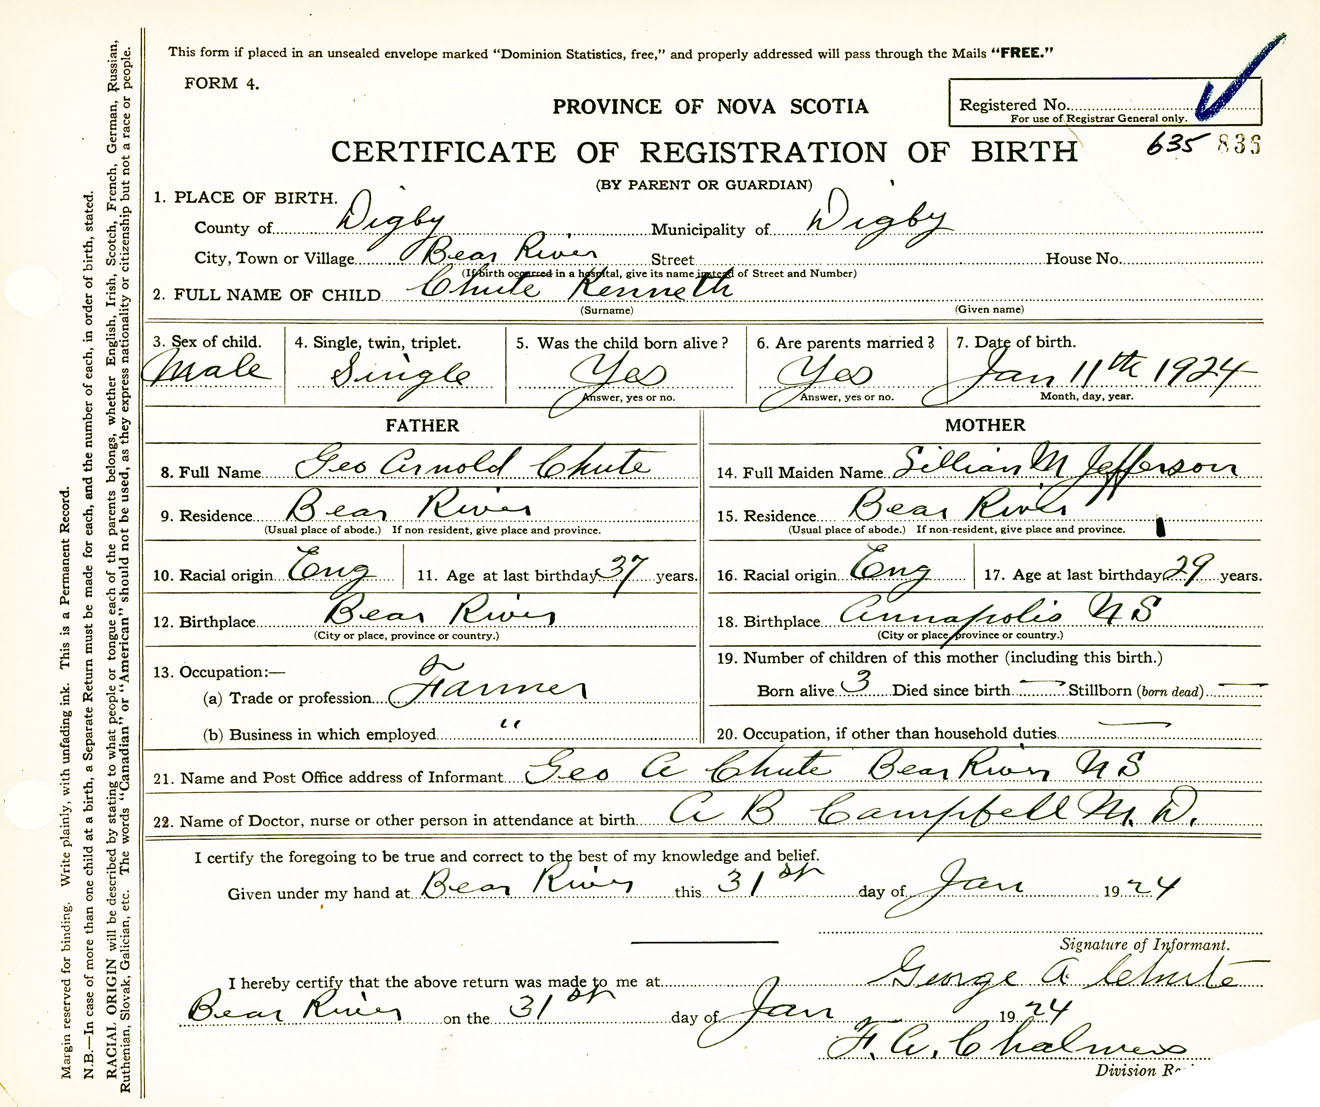 This form if placed in an unsealed envelope marked "Dominion Statistics, free," and properly addressed will pass through the Mails "FREE."
FORM 4.
PROVINCE OF NOVA SCOTIA
Registered No.
For use of Registrar General only.
635 836
CERTIFICATE OF REGISTRATION OF BIRTH
(BY PARENT OR GUARDIAN)
1. PLACE OF BIRTH.
County of Digby Municipality of Digby
City, Town or Village Bear River Street House No.
(If birth occurred in a hospital, give its name instead of Street and Number)
2. FULL NAME OF CHILD Chute Kenneth
(Surname) (Given name)
3. Sex of child. 4. Single, twin, triplet. 5. Was the child born alive? 6. Are parents married? 7. Date of birth.
Male Single Yes Yes Jan 11th 1924
Answer, yes or no. Answer, yes or no. Month, day, year.
FATHER
8. Full Name Geo Arnold Chute
9. Residence Bear River
(Usual place of abode.) If non-resident, give place and province.
10. Racial origin Eng 11. Age at last birthday 37 years.
12. Birthplace Bear River
(City or place, province or country.)
13. Occupation:—
(a) Trade or profession Farmer
(b) Business in which employed "
MOTHER
14. Full Maiden Name Lillian M Jefferson
15. Residence Bear River
(Usual place of abode.) If non-resident, give place and province.
16. Racial origin Eng 17. Age at last birthday 29 years.
18. Birthplace Annapolis N S
(City or place, province or country.)
19. Number of children of this mother (including this birth.)
Born alive 3 Died since birth — Stillborn (born dead) —
20. Occupation, if other than household duties —
21. Name and Post Office address of Informant Geo A Chute Bear River N S
22. Name of Doctor, nurse or other person in attendance at birth A B Campbell M. D.
I certify the foregoing to be true and correct to the best of my knowledge and belief.
Given under my hand at Bear River this 31st day of Jan 1924
Signature of Informant.
George A Chute
I hereby certify that the above return was made to me at
Bear River on the 31st day of Jan 1924
F. A. Chalmers
Division
Margin reserved for binding. Write plainly, with unfading ink. This is a Permanent Record.
N.B.—In case of more than one child at a birth, a Separate Return must be made for each, and the number of each, in order of birth, stated.
RACIAL ORIGIN will be described by stating to what people or tongue each of the parents belongs, whether English, Irish, Scotch, French, German, Russian,
Ruthenian, Slovak, Galician, etc. The words "Canadian" or "American" should not be used, as they express nationality or citizenship but not a race or people.